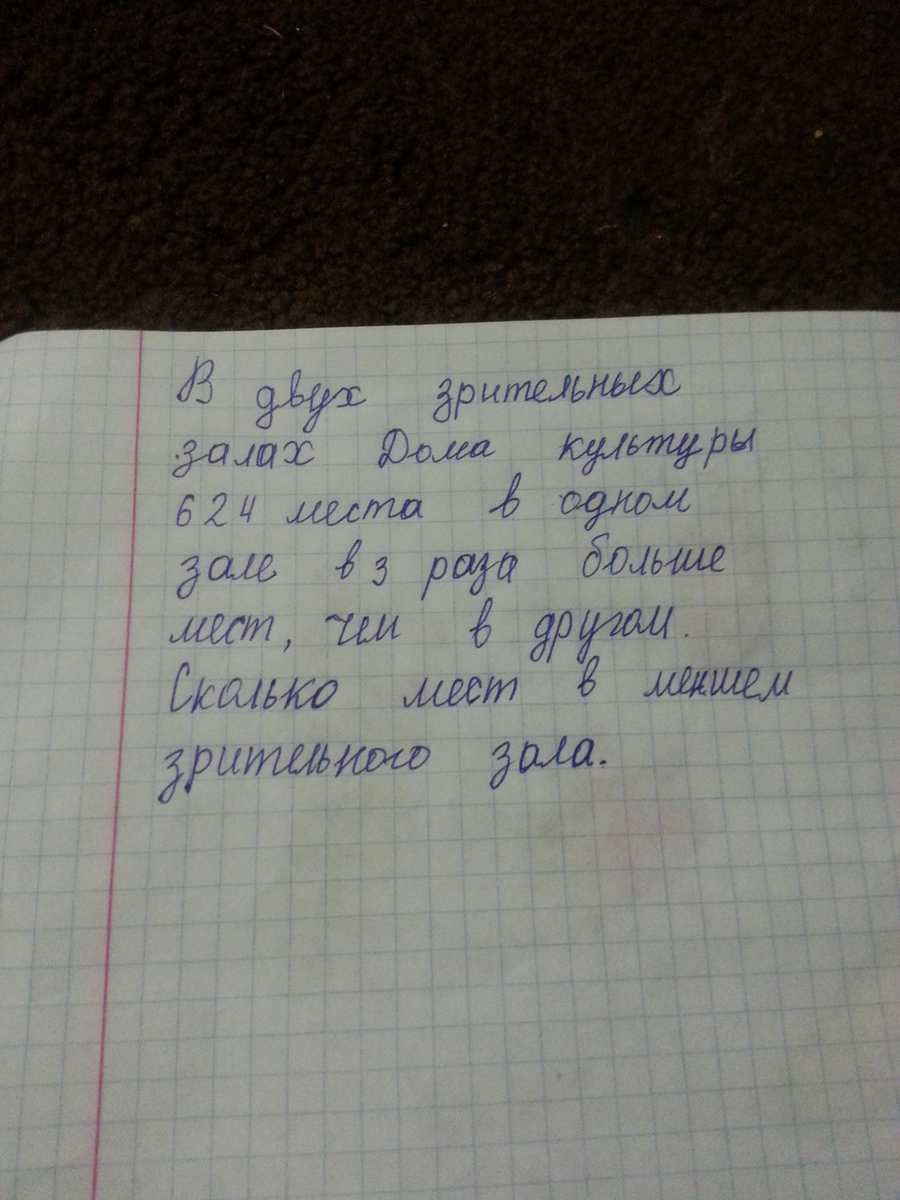 В двух зрительных
залах Дома культуры
624 места в одном
зале в 3 раза больше
мест, чем в другом.
Сколько мест в меншем
зрительного зала.